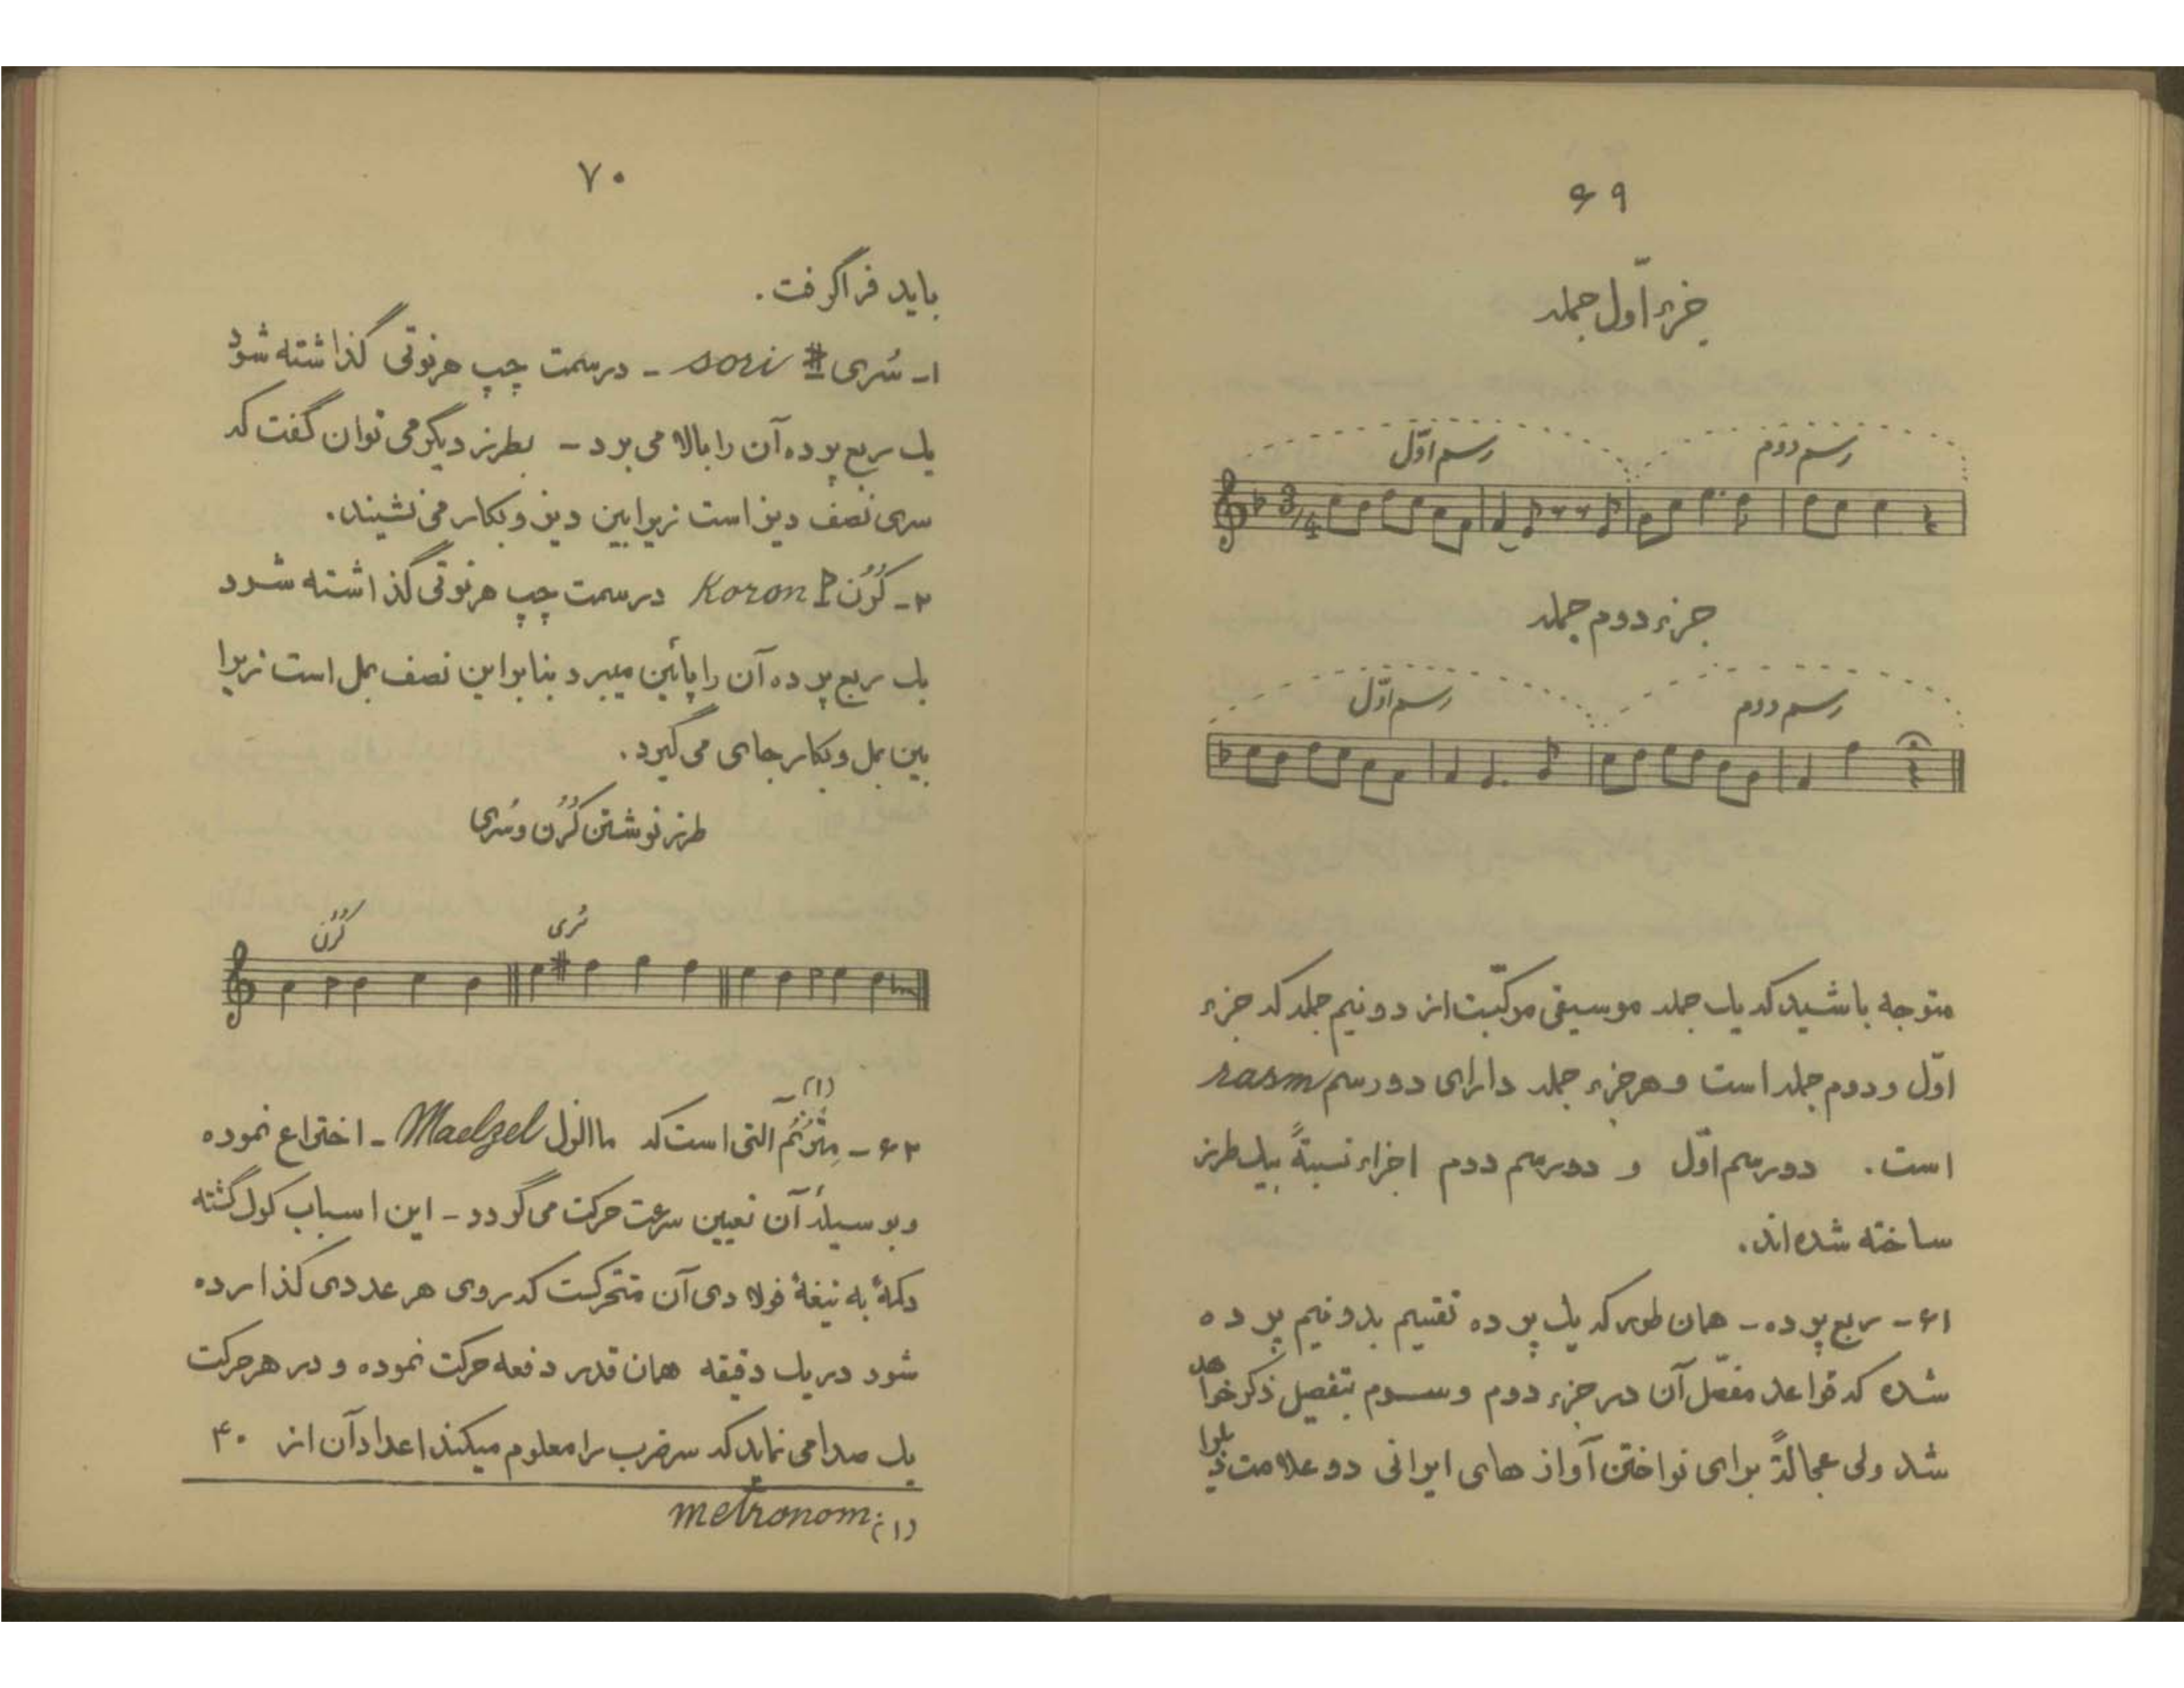 ۶۹
جزء اوّل جمله
رسم اوّل رسم دوم
3/4
جزء دوم جمله
رسم اوّل رسم دوم
متوجه باشید که یک جمله موسیقی مرکّبست از دو نیم جمله که جزء
اوّل و دوم جمله است و هر جزء جمله دارای دو رسم rasm
است. دو رسم اوّل و دو رسم دوم اجزاء نسبةً بیک طرز
ساخته شده‌اند.
۶۱- ربع پرده- همان طور که یک پرده تقسیم بدو نیم پرده
شده که قواعد مفصّل آن در جزء دوم و سوم بتفصیل ذکر خواهد
شد ولی عجالةً برای نواختن آواز های ایرانی دو علامت ذیل را
۷۰
باید فراگرفت.
۱- سُری sori - در سمت چپ هر نوتی گذاشته شود
یک ربع پرده آن را بالا می برد - بطرز دیگر می توان گفت که
سری نصف دیز است زیرا بین دیز و بکار می نشیند.
۲- کُرُن Koron در سمت چپ هر نوتی گذاشته شود
یک ربع پرده آن را پائین میبرد بنا براین نصف بمل است زیرا
بین بمل و بکار جای می گیرد.
طرز نوشتن کُرُن و سُری
کُرُن سُری
۶۲- مِتْرُنُم (۱) آلتی است که ماالزل Maelzel - اختراع نموده
و بوسیلهٔ آن تعیین سرعت حرکت می گردد - این اسباب کوک گشته
دکمهٔ به تیغهٔ فولادی آن متحرکست که روی هر عددی گذارده
شود در یک دقیقه همان قدر دفعه حرکت نموده و در هر حرکت
یک صدا می نماید که سر ضرب را معلوم میکند اعداد آن از ۴۰
(۱): metronom